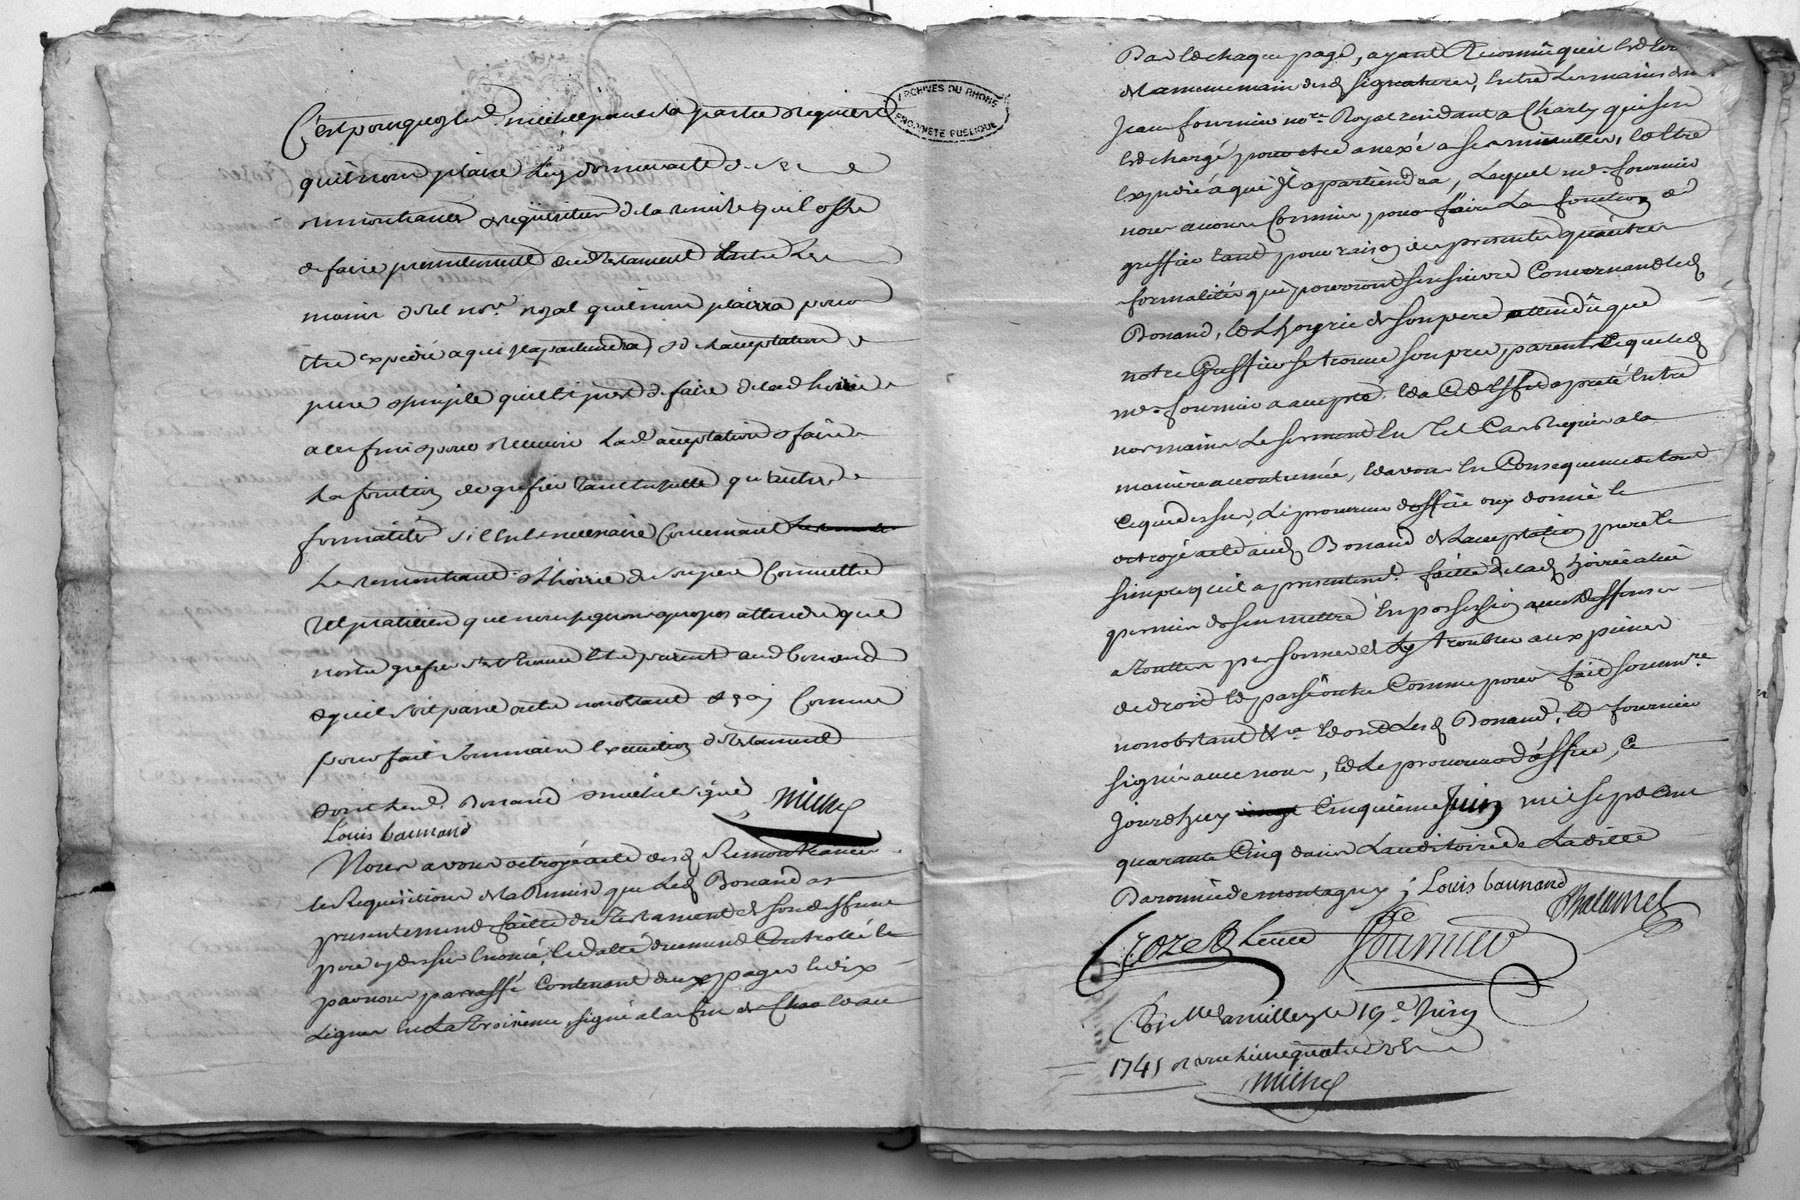 C'est pourquoy led. michel pour la partie requiert
qu'il nous plaise luy donner acte de ses
remontrances requisition de la remise qu'il offre
de faire presentement dud testament entre les
mains de tel nore. royal qu'il nous plaira pour
être expedié a qui il apartiendra, et de l'acceptation
pure et simple qu'il est prest de faire de lad hoirie
a ces fins pour recevoir lad acceptation et faire
la fonction de grefier tant en icelle qu'autres
formalités s'il en est necessaire concernant
le remontrant et l'hoirie de son pere commettre
tel praticien que nous jugerons a propos attendu que
nostre grefier se trouve etre parent aud bonand
et qu'il soit passé outre nonobstant et comme
pour fait sommaire execution de testament
dont led. Bonand et michel signé michel
Louis baunand
Nous avons octroyé acte desd Remontrances
et Requisitions de la Remise que led Bonand a
presentement faitte du Testament de son deffunt
pere cy dessus enoncé, led acte duement Controllé et
par nous parraffé contenant deux pages et dix
lignes en la troisieme, signé a la fin de
ARCHIVES DU RHONE
PROPRIÉTÉ PUBLIQUE
Par de chaque page, ayant Reconnu qu'il est
de la meme main desd signatures, entre les mains de me
Jean fournier nore. Royal residant a Charly qui sera
et chargé pour etre anexé a ses minuttes, et etre
expedié a qui il apartiendra, Lequel me. fournier
nous avons Commis pour faire la fonction de
greffier tant pour raison des presentes qu'autres
formalités qui pourront s'ensuivre Concernant led
Bonand, et L'hoyrie de son pere attendû que
notre Greffier se trouve son parent Ce que led
me. fournier a accepté, et a Cet effet a preté entre
nos mains le serment en tel Cas Requis a la
maniere accoutumée, et avons en Consequence de tout
Ce que dessus, Le procureur d'office ouy donné et
octroyé acte aud Bonand de L'acceptation pure et
simple qu'il a presentemt. faitte de lad hoirie a luy
permis de s'en mettre en possession avec deffenses
a touttes personnes de l'y troubler aux peines
de droit et passé outre Comme pour fait sommre
nonobstant &ra et ont lesd Bonand, et fournier
signé avec nous, et Le procureur d'office, Ce
jourd'huy Cinquieme Juin mil sept Cent
quarante Cinq dans L'auditoire de La ditte
Baronnie de montagny ; Louis baunand
Crozet Fournier
Conlle a millery le 19e Juin
1745 reçu
michel